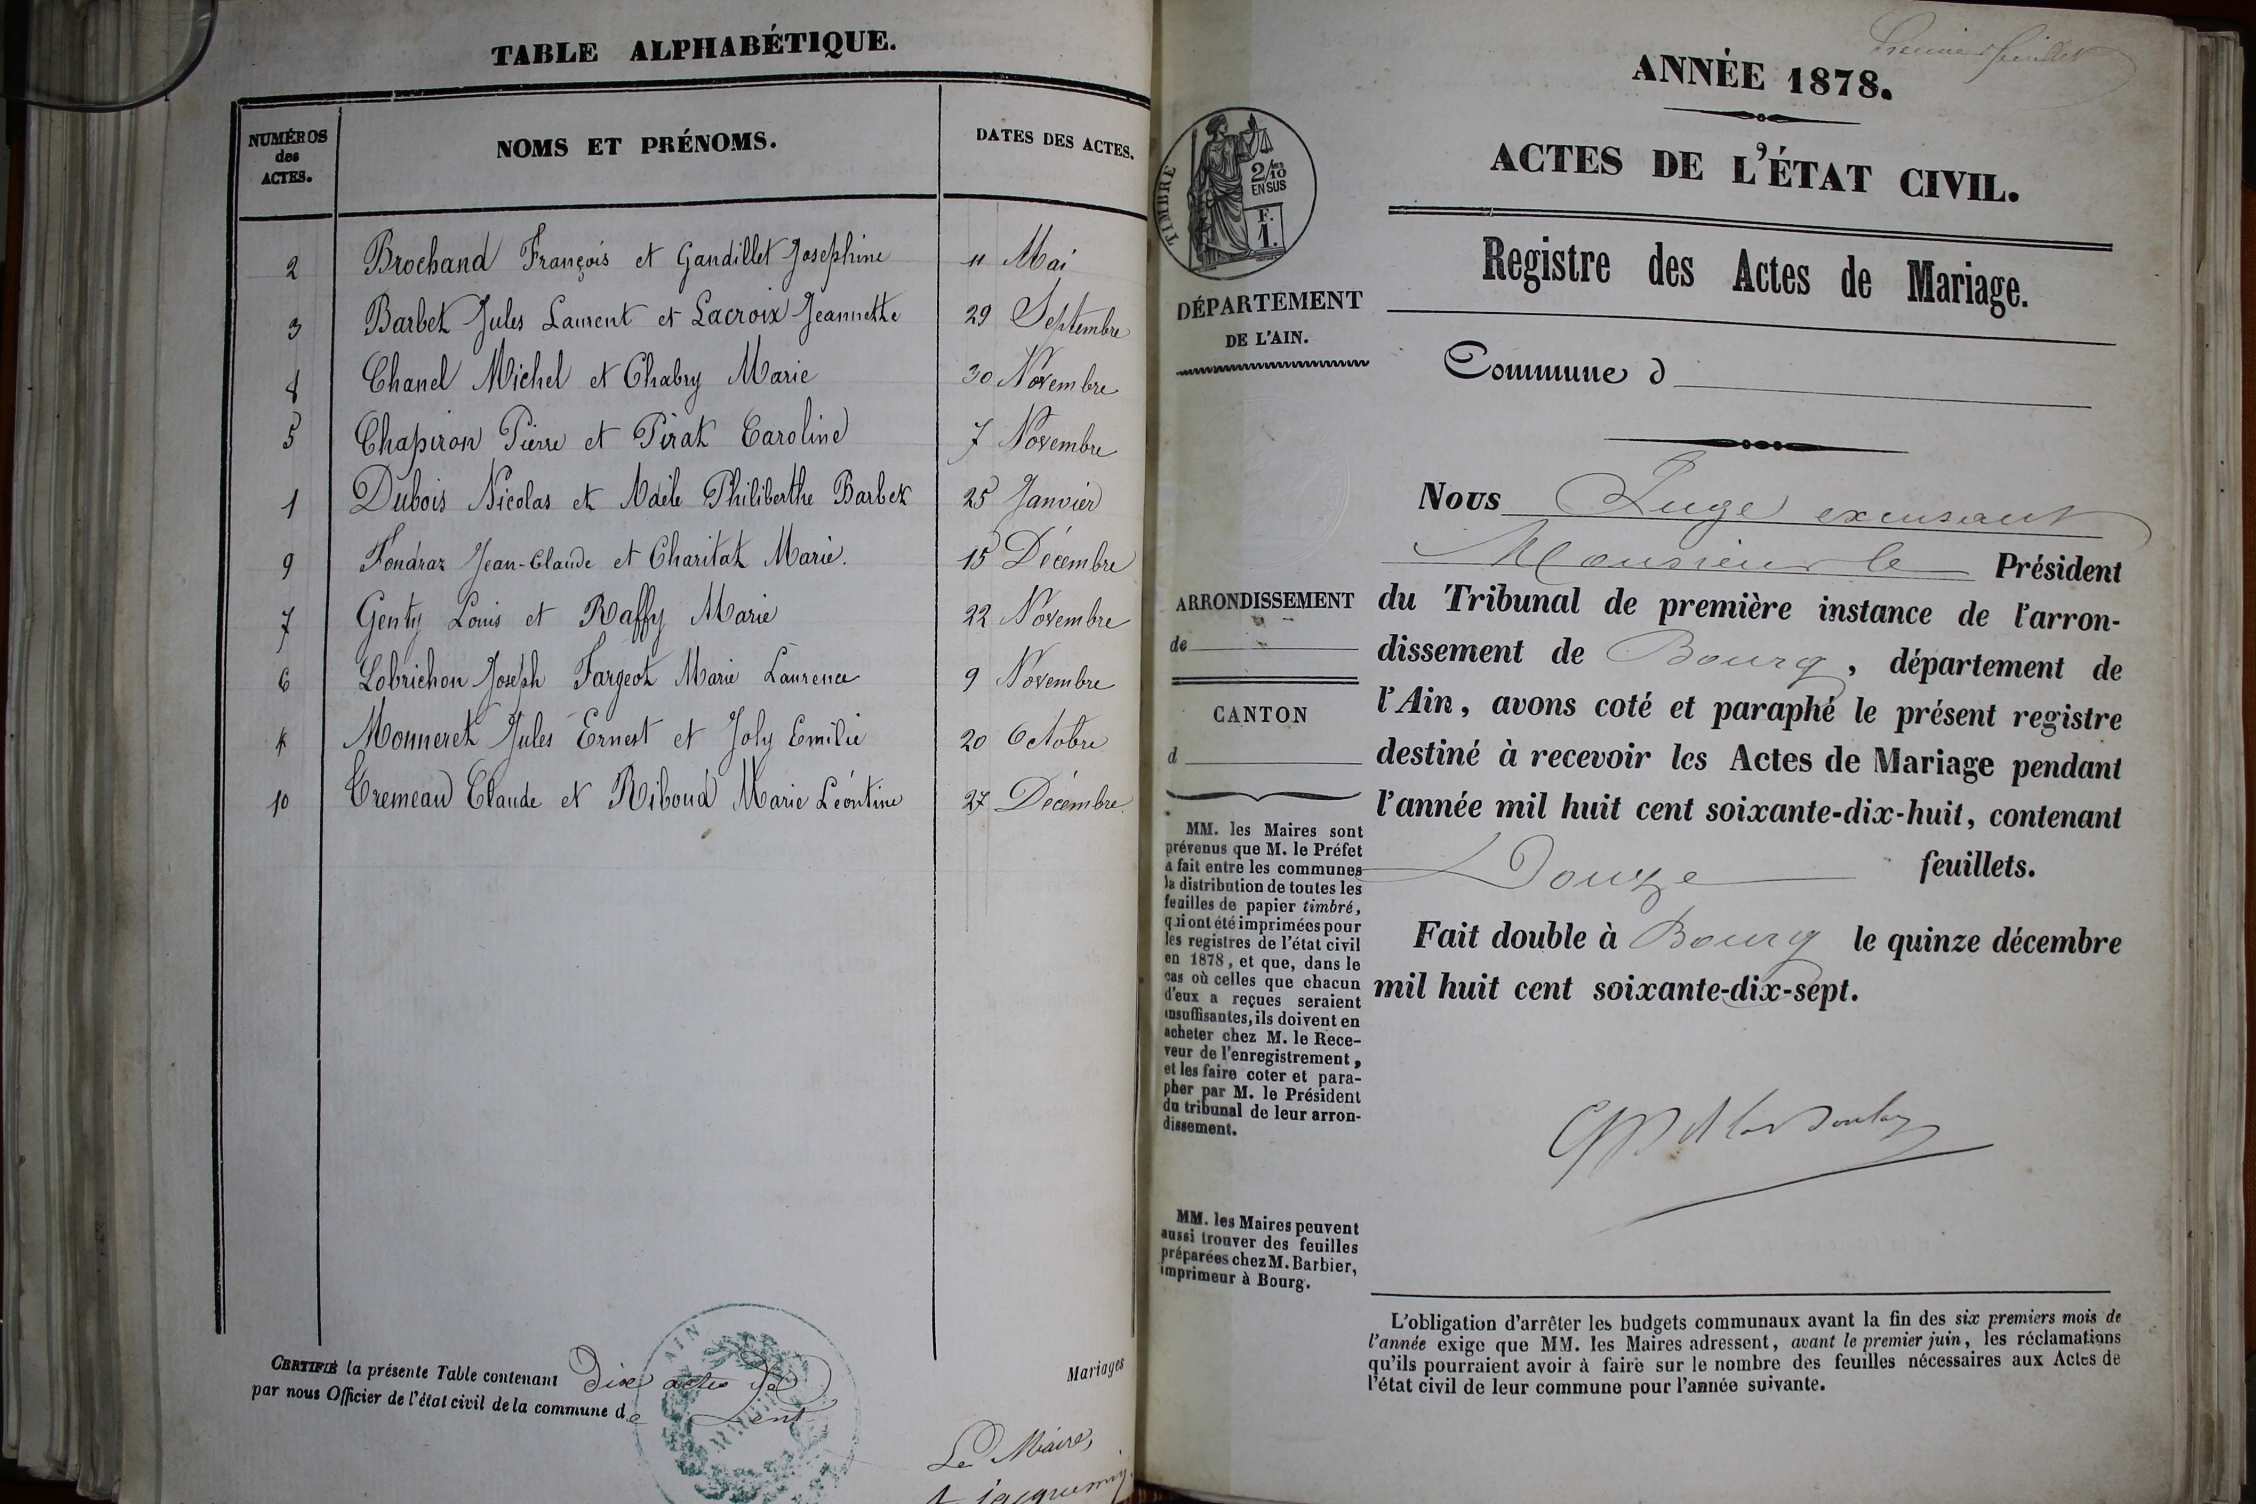 TABLE ALPHABÉTIQUE.
NUMÉROS des ACTES.
NOMS ET PRÉNOMS.
DATES DES ACTES.
2 Brochand François et Gandillet Josephine 11 Mai
3 Barbet Jules Laurent et Lacroix Jeannette 29 Septembre
8 Chanel Michel et Chabry Marie 30 Novembre
5 Chapiron Pierre et Pirat Caroline 7 Novembre
1 Dubois Nicolas et Adèle Philiberthe Barbet 25 Janvier
9 Fondraz Jean-Claude et Charitat Marie. 15 Décembre
7 Genty Louis et Raffy Marie 22 Novembre
6 Lobrichon Joseph Fargeot Marie Laurence 9 Novembre
4 Monneret Jules Ernest et Joly Emilie 20 Octobre
10 Cremeau Claude et Riboud Marie Léontine 27 Décembre
CERTIFIÉ la présente Table contenant Dix actes de Mariages
par nous Officier de l'état civil de la commune de Lent
AIN
Le Maire,
Premier feuillet
ANNÉE 1878.
ACTES DE L'ÉTAT CIVIL.
Registre des Actes de Mariage.
Commune d
TIMBRE
2/10 EN SUS
F. 1.
DÉPARTEMENT
DE L'AIN.
ARRONDISSEMENT
de
CANTON
d
MM. les Maires sont
prévenus que M. le Préfet
a fait entre les communes
la distribution de toutes les
feuilles de papier timbré,
qui ont été imprimées pour
les registres de l'état civil
en 1878, et que, dans le
cas où celles que chacun
d'eux a reçues seraient
insuffisantes, ils doivent en
acheter chez M. le Rece-
veur de l'enregistrement,
et les faire coter et para-
pher par M. le Président
du tribunal de leur arron-
dissement.
MM. les Maires peuvent
aussi trouver des feuilles
préparées chez M. Barbier,
imprimeur à Bourg.
Nous Juge excusant
Monsieur le Président
du Tribunal de première instance de l'arron-
dissement de Bourg, département de
l'Ain, avons coté et paraphé le présent registre
destiné à recevoir les Actes de Mariage pendant
l'année mil huit cent soixante-dix-huit, contenant
Douze feuillets.
Fait double à Bourg le quinze décembre
mil huit cent soixante-dix-sept.
L'obligation d'arrêter les budgets communaux avant la fin des six premiers mois de
l'année exige que MM. les Maires adressent, avant le premier juin, les réclamations
qu'ils pourraient avoir à faire sur le nombre des feuilles nécessaires aux Actes de
l'état civil de leur commune pour l'année suivante.